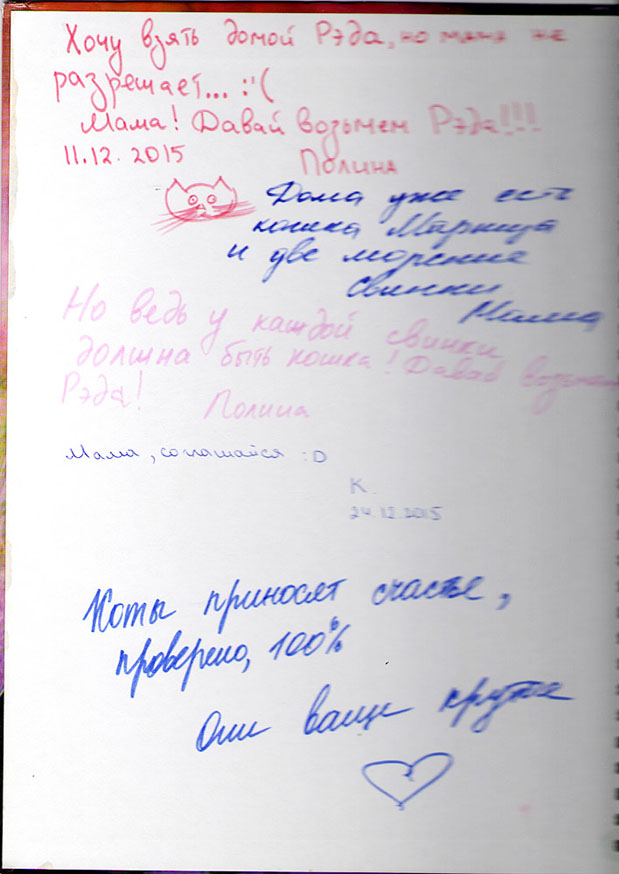 Хочу взять домой Рэда, но мама не
разрешает... :'(
Мама! Давай возьмем Рэда!!!
11.12.2015 Полина
Дома уже есть
кошка Марыся
и две морские
свинки
Мама
Но ведь у каждой свинки
должна быть кошка! Давай возьмем
Рэда! Полина
Мама, соглашайся :D
К.
24.12.2015
Коты приносят счастье,
проверено, 100%
Они ваще крутые